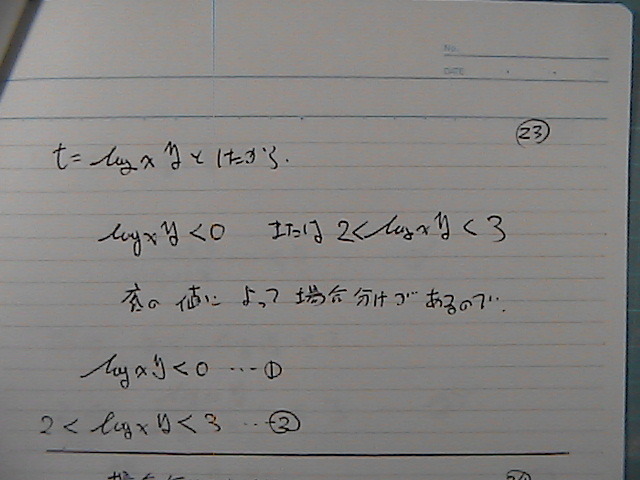 No.
DATE
㉓
t = log x y としたから.
log x y < 0 または 2 < log x y < 3
の値によって場合分けがあるので.
log x y < 0 … ①
2 < log x y < 3 … ②